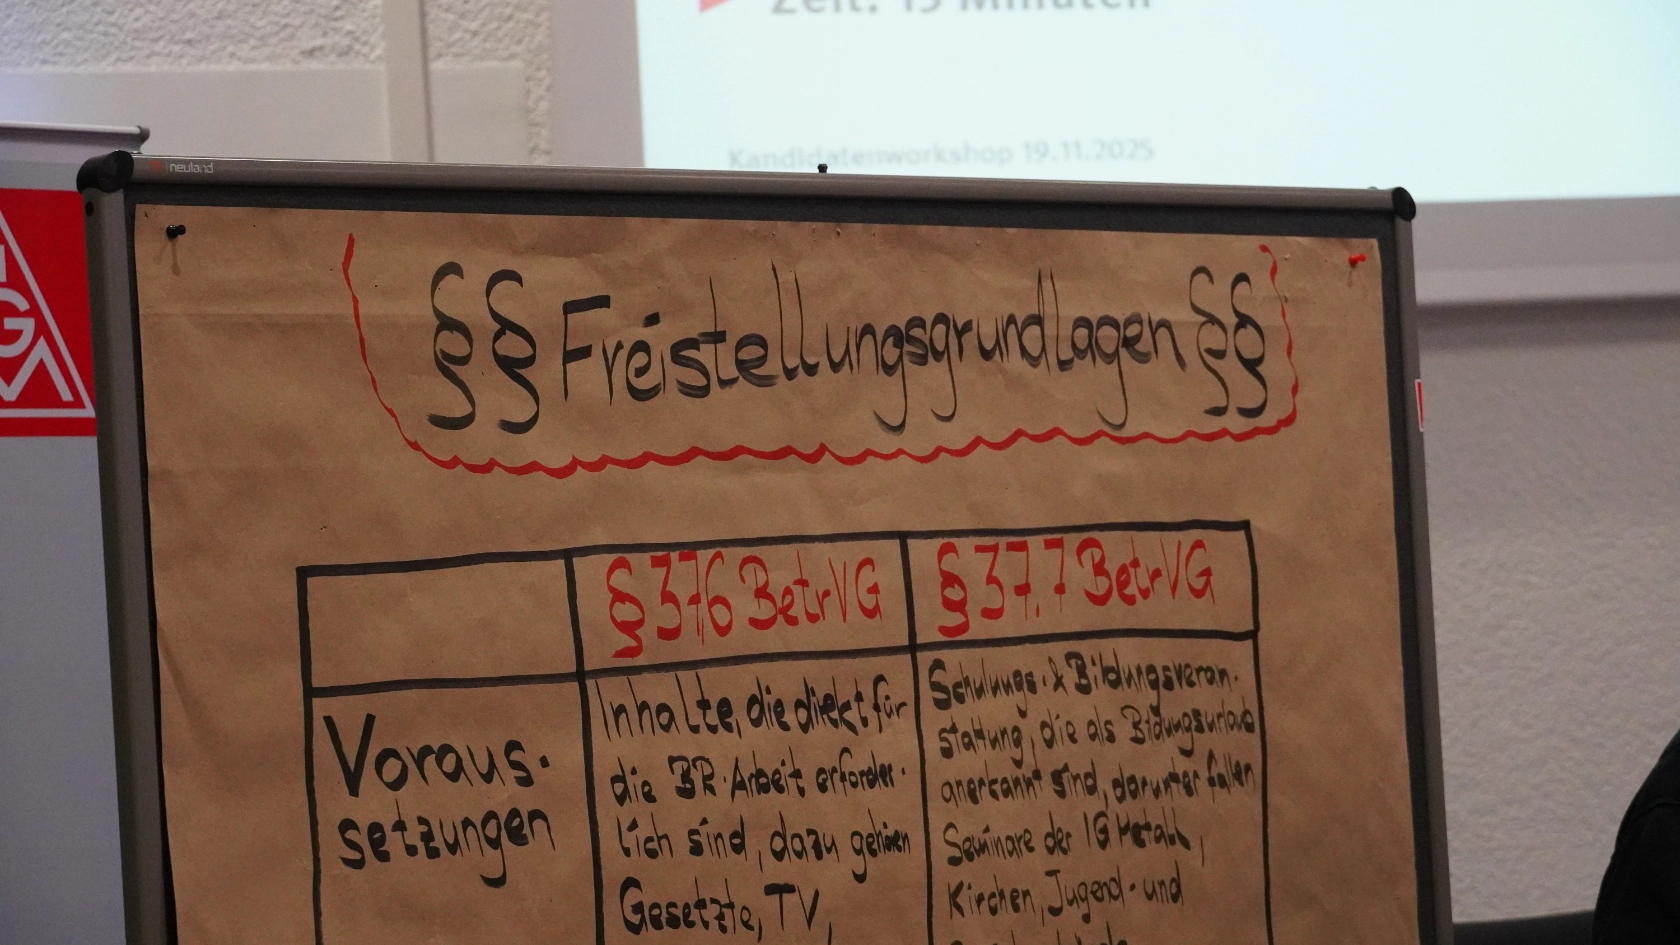 Zeit: 15 Minuten
Kandidatenworkshop 19.11.2025
neuland
IGM
§§ Freistellungsgrundlagen §§
§ 37.6 BetrVG
§ 37.7 BetrVG
Voraus-
setzungen
Inhalte, die direkt für
die BR-Arbeit erforder-
lich sind, dazu gehören
Gesetzte, TV,
Schulungs- & Bildungsveran-
staltung, die als Bildungsurlaub
anerkannt sind, darunter fallen
Seminare der IG Metall,
Kirchen, Jugend- und